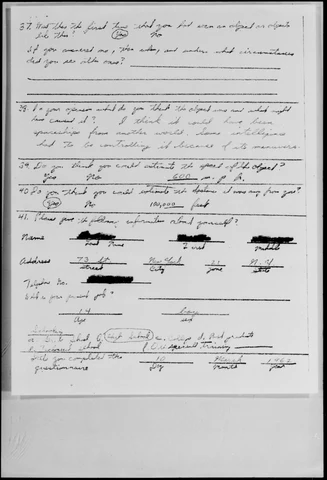 37. Was this the first time that you had seen an object or objects
like this? Yes No
If you answered no, then when, and under what circumstances
did you see other ones?
38. In your opinion what do you think the object was and what might
have caused it? I think it could have been
spaceships from another world. Some intelligence
had to be controlling it because of its maneuvers.
39. Do you think you could estimate the speed of the object?
Yes No 600 m.p.h.
40. Do you think you could estimate the distance it was away from you?
Yes No 100,000 feet
41. Please give the following information about yourself?
Name
Last Name First Middle
Address 73 St. New York 21 N.Y
Street City Zone State
Telephone No.
What is your present job?
14 boy
Age Sex
Schooling
a. Grade School b. High School c. College d. Post graduate
e. Technical school f. Other special training
Date you completed this 10 March 1962
questionnaire Day Month Year